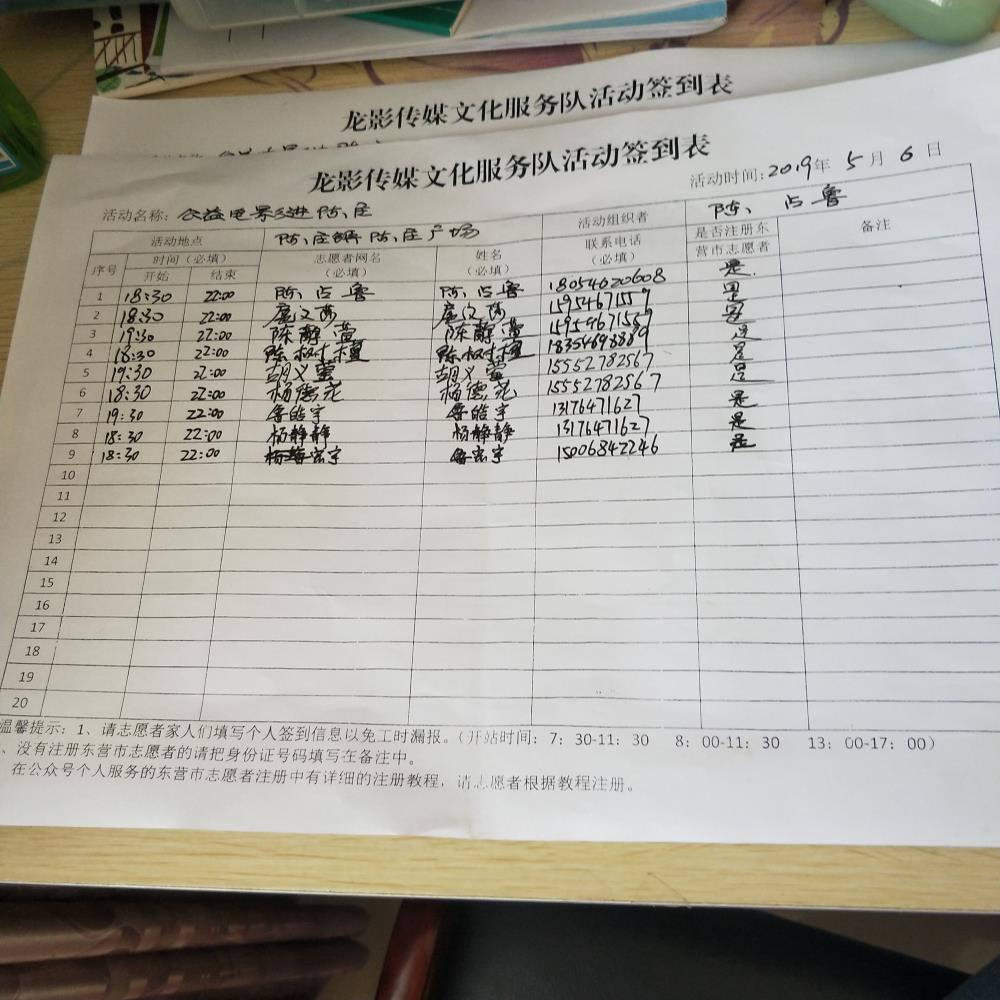 龙影传媒文化服务队活动签到表
龙影传媒文化服务队活动签到表
活动时间:2019年 5月 6日
活动名称: 公益电影进陈庄 活动组织者 陈占鲁
活动地点 陈庄镇陈庄广场 联系电话 是否注册东营市志愿者 备注
序号 时间（必填） 志愿者网名（必填） 姓名（必填） （必填）
开始 结束
1 18:30 22:00 陈占鲁 陈占鲁 18054620608 是
2 18:30 22:00 15954671559 是
3 19:30 22:00 陈静萱 陈静萱 15954671559 是
4 18:30 22:00 陈树檀 陈树檀 18354698889 是
5 19:30 22:00 胡义萱 胡义萱 15552782567 是
6 18:30 22:00 杨德花 杨德花 15552782567 是
7 19:30 22:00 鲁皓宇 鲁皓宇 13176471627 是
8 18:30 22:00 杨静静 杨静静 13176471627 是
9 18:30 22:00 宏宇 鲁宏宇 15006842246 是
10
11
12
13
14
15
16
17
18
19
20
温馨提示：1、请志愿者家人们填写个人签到信息以免工时漏报。（开站时间：7：30-11：30 8：00-11：30 13：00-17：00）
、没有注册东营市志愿者的请把身份证号码填写在备注中。
在公众号个人服务的东营市志愿者注册中有详细的注册教程，请志愿者根据教程注册。